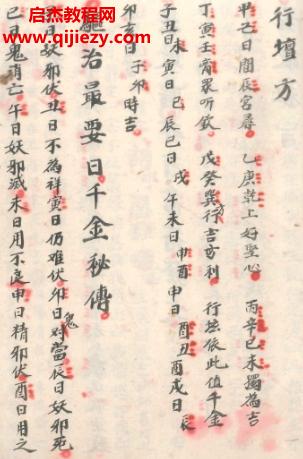 启杰教程网
www.qijiezy.com
行壇方
甲己日開辰宮尋 乙庚乾上好堅心 丙辛巳未獨為吉
丁寅壬 眾听 戊癸巽行吉方利 行坛依此值千金
子丑日未寅日巳辰巳日戌午未日申酉申日酉丑酉戌日辰
卯亥日子卯時吉
驅治最要日千金秘傳
子日妖邪伏丑日不為祥寅日仍难伏卯日鬼对當辰日妖邪死
巳日鬼消亡午日妖邪滅未日用不良申日精邪伏酉日用之